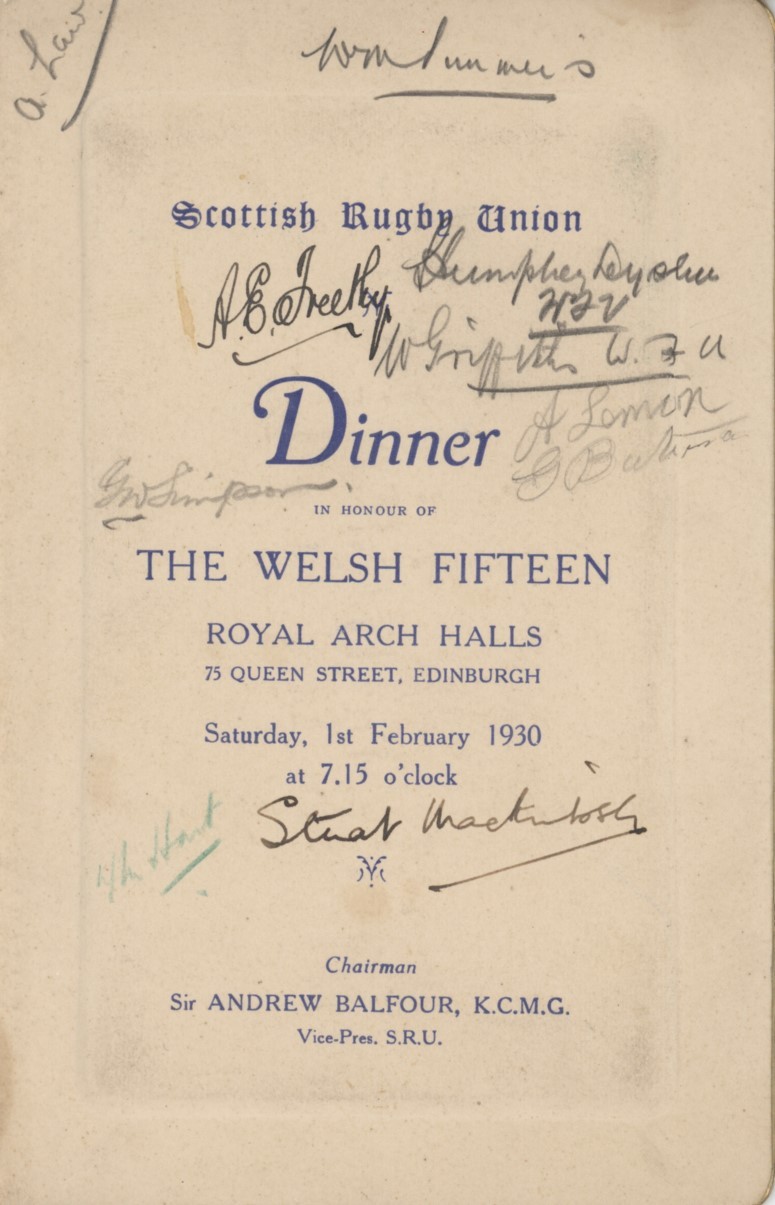 A. Law.
Wm
Scottish Rugby Union
A.E. Freethy
Humphrey
W Griffiths W.F.U
Dinner
A Lemon
G
GW Simpson.
IN HONOUR OF
THE WELSH FIFTEEN
ROYAL ARCH HALLS
75 QUEEN STREET, EDINBURGH
Saturday, 1st February 1930
at 7.15 o'clock
Stuart Mackintosh
Hart
Chairman
Sir ANDREW BALFOUR, K.C.M.G.
Vice-Pres. S.R.U.